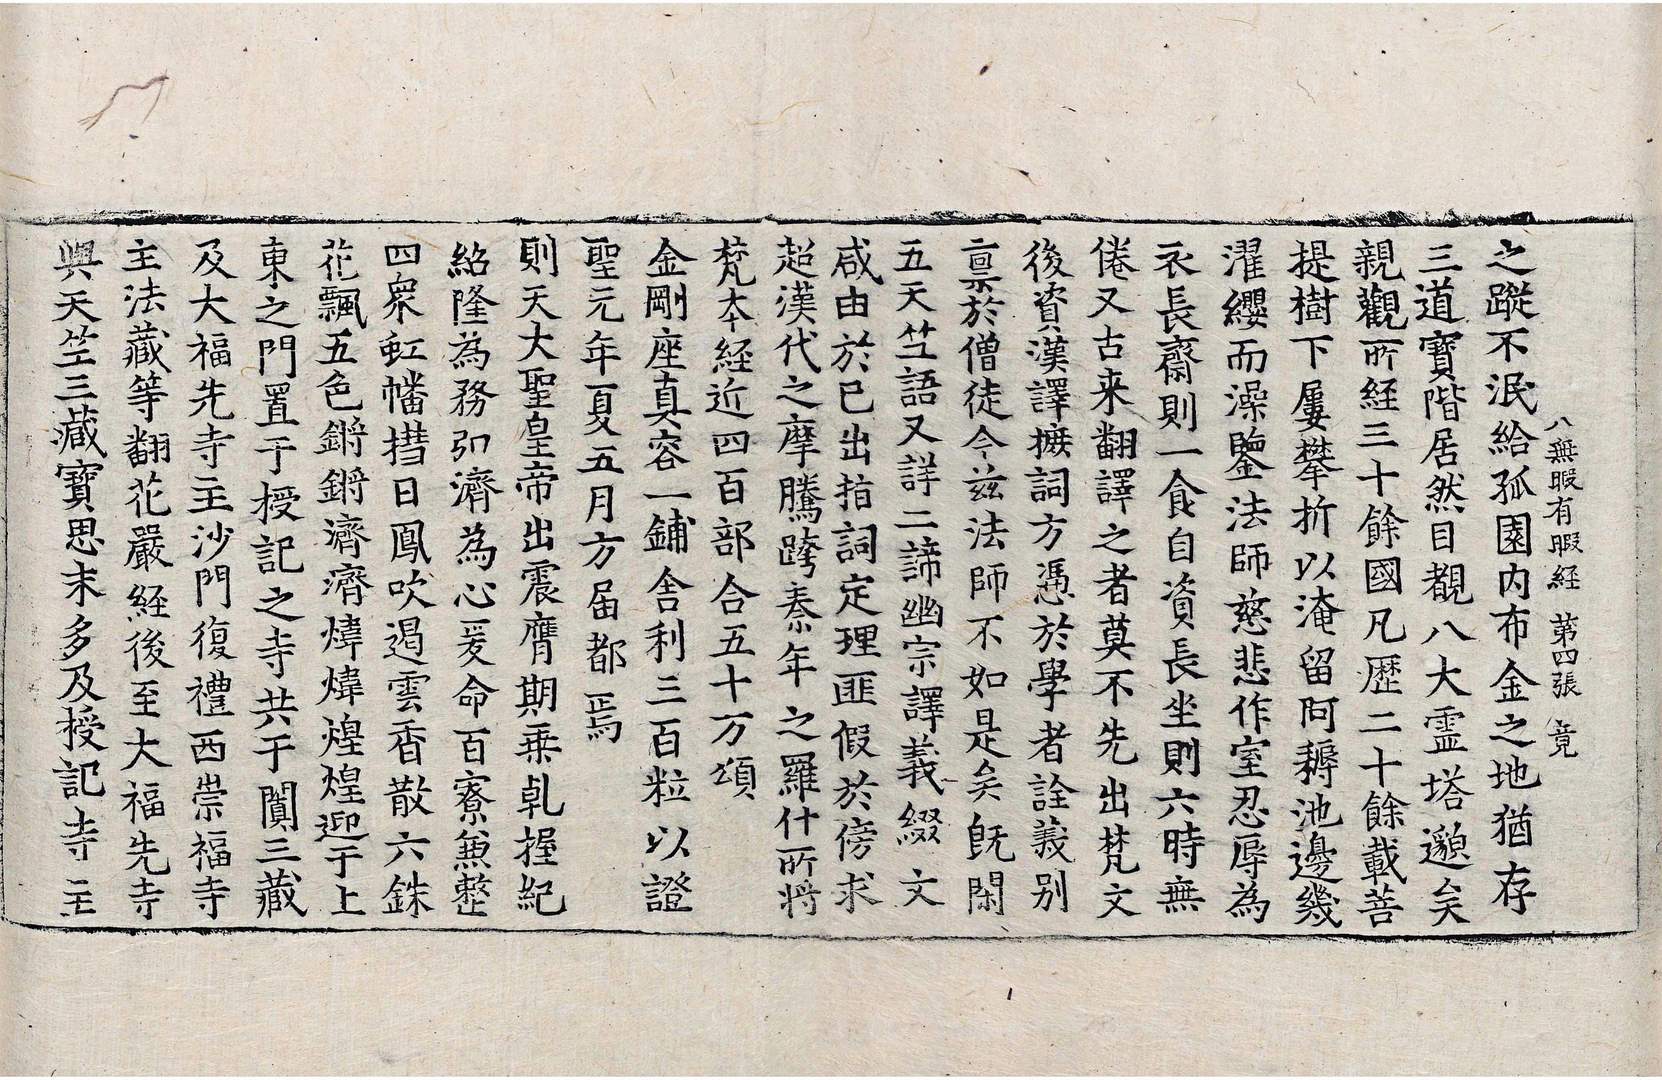 八無暇有暇経 第四張 竟
之蹤不泯給孤園内布金之地猶存
三道寶階居然目覩八大霊塔邈矣
親觀所経三十餘國凡歴二十餘載菩
提樹下屢攀折以淹留阿耨池邊幾
濯纓而澡鑒法師慈悲作室忍辱為
衣長齋則一食自資長坐則六時無
倦又古来翻譯之者莫不先出梵文
後資漢譯摭詞方憑於學者詮義别
稟於僧徒今茲法師不如是矣旣閑
五天竺語又詳二諦幽宗譯義綴文
咸由於已出指詞定理匪假於傍求
超漢代之摩騰跨秦年之羅什所将
梵本経近四百部合五十万頌
金剛座真容一鋪舎利三百粒以證
聖元年夏五月方届都焉
則天大聖皇帝出震膺期乗乹握紀
紹隆為務弘濟為心爰命百寮兼整
四衆虹幡揩日鳳吹遏雲香散六銖
花飄五色鏘鏘濟濟煒煒煌煌迎于上
東之門置于授記之寺共于闐三藏
及大福先寺主沙門復禮西崇福寺
主法藏等翻花嚴経後至大福先寺
與天竺三藏寶思末多及授記寺主